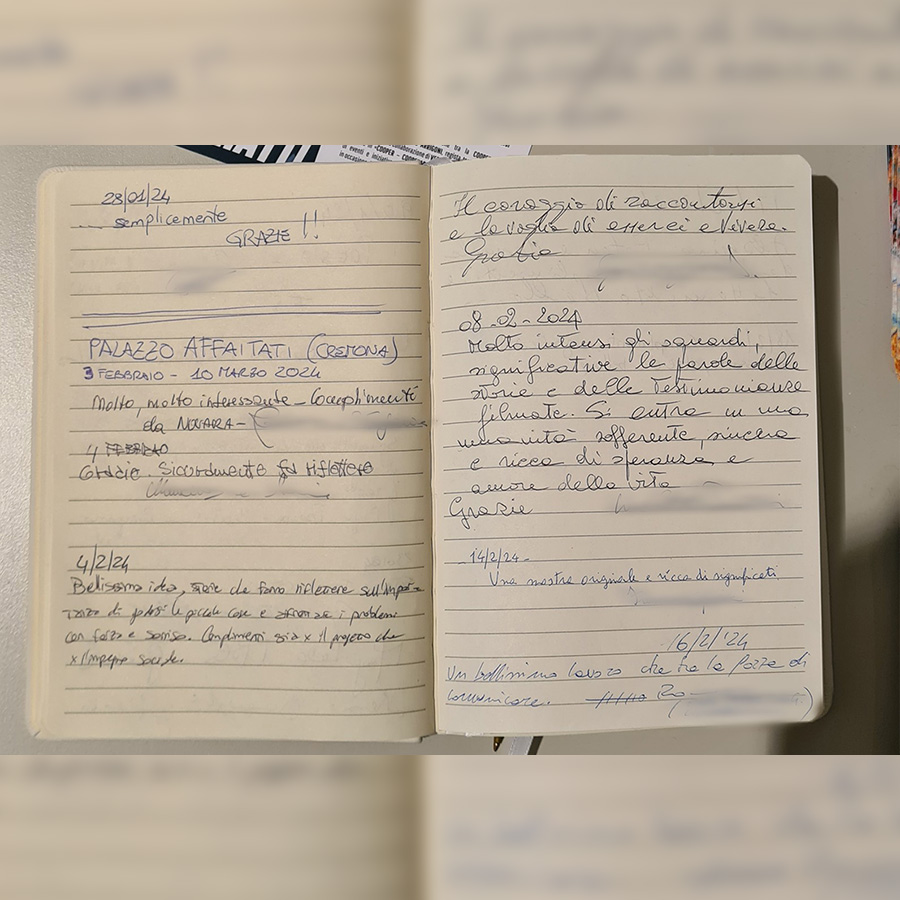 28/01/24
.... semplicemente
GRAZIE !!
PALAZZO AFFAITATI (CREMONA)
3 FEBBRAIO - 10 MARZO 2024
Molto, molto interessante - Complimenti
da NOVARA -
4 FEBBRAIO
Grazie. Sicuramente fa riflettere
4/2/24
Bellissima idea, storie che fanno riflettere sull'impor-
tanza di godersi le piccole cose e affrontare i problemi
con forza e sorriso. Complimenti sia x il progetto che
x l'impegno sociale.
Il coraggio di raccontarsi
e la voglia di esserci e vivere.
Grazie
08-02-2024
Molto intensi gli sguardi,
significative le parole delle
storie e delle testimonianze
filmate. Si entra in una
umanità sofferente, sincera
e ricca di speranza e
amore della vita
Grazie
-14/2/24-
Una mostra originale e ricca di significati
16/2/'24
Un bellissimo lavoro che ha la forza di
comunicare.